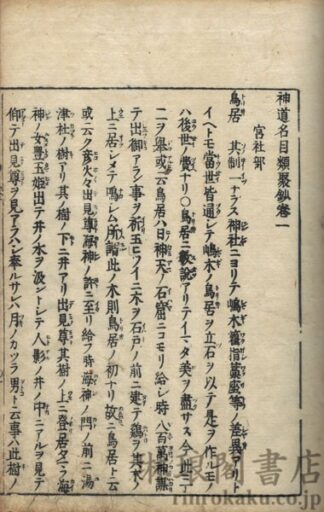 神道名目類聚鈔巻一
宮社部
鳥居 其制一ナラス神社ニヨリテ嶋木籠指藁座等ノ差異アリト
イヘトモ當世皆通シテ嶋木ノ鳥居ヲ立石ヲ以テ是ヲ作ルモ
ハ後世ノ製ナリ〇鳥居ニ數説アリテイマタ美ヲ盡サス今此ニ一
二ヲ擧或云鳥居ハ日神天ノ石窟ニコモリ給シ時八百萬神謀
テ出御アラン事ヲ祈玉ニイニ木ヲ石戸ノ前ニ建テ鶏ヲ其木ノ
上ニ居シメテ鳴シム所謂此ノ木則鳥居ノ初ナリ故ニ鳥居ト云
或云ク彦火々出見尊海神ノ許ニ至リ給フ時海神ノ門ノ前ニ湯
津杜ノ樹アリ其樹ノ下ニ井アリ出見尊其樹ノ上ニ登居タマフ海
神ノ女豊玉姫出テ井ノ水ヲ汲ントシテ人影ノ井ノ中ニアルヲ見テ
仰テ出見尊ヲ見アラハシ奉ルサレハ月ノカツラ男ト云事ハ此樹ノ
rinrokaku.co.jp
書店